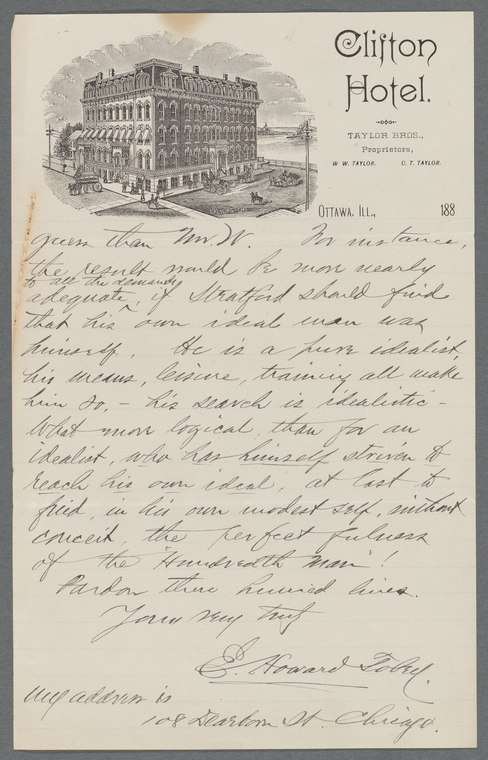 Clifton
Hotel.
TAYLOR BROS.,
Proprietors,
W. W. TAYLOR. C. T. TAYLOR.
OTTAWA, ILL., 188
guess than Mr. W. For instance,
the result would be more nearly
to all the demands
adequate, if Stratford should find
that his own ideal man was
himself. He is a pure idealist,
his means, leisure, training all make
him so, - his search is idealistic -
What more logical than for an
idealist, who has himself striven to
reach his own ideal, at last to
find, in his own modest self, without
conceit, the perfect fulness
of the "Hundredth Man"!
Pardon these hurried lines.
Yours very truly
E. Howard Tobey.
My address is
108 Dearborn St. Chicago.